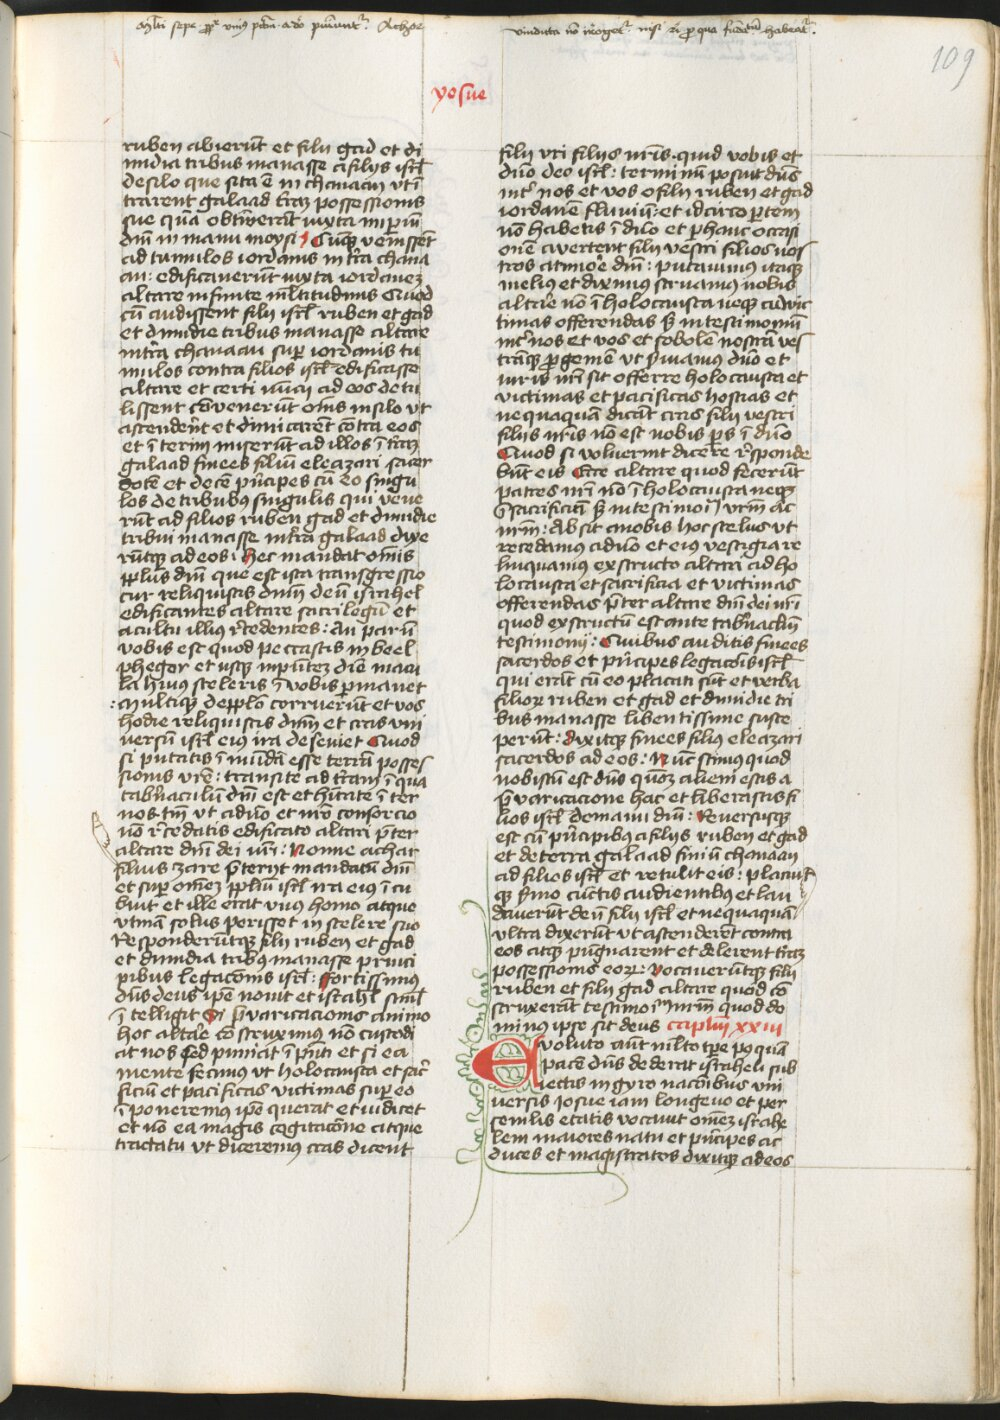 Multi sepe propter unius peccatum a deo puniuntur. Achor
vindicta non irrogetur nisi re pro qua habeatur.
109
yosue
ruben abierūt et filii gad et di
midia tribus manasse a filiis isrl̄
de silo que sita ē in chanaan ut ī
trarent galaad trāꝫ possessionis
sue quā obtinuerāt iuxta imperiū
dnī in manu moysi Cūqꝫ venissēt
ad tumulos iordanis in trā chana
an: edificaverūt iuxta iordanez
altare infinite mltitudinis Quod
cū audissent filii isrl̄ ruben et gad
et dimidie tribus manasse altare
in trā chanaan super iordanis tu
mulos contra filios isrl̄ edificasse
altare et certi nūcii ad eos detu
lissent cōvenerūt oms in silo ut
ascenderēt et dimicarēt cōtra eos
et īterim miserūt ad illos ī trāꝫ
galaad finees filiū eleazari sacer
dotē et decē pncipes cū eo singu
los de tribubꝯ singulis qui vene
rūt ad filios ruben gad et dimidie
tribui manasse in trā galaad dixe
rūtqꝫ ad eos: hec mandat omīs
pplus dnī que est ista transgressio
cur reliquistis dnm̄ deū israhel
edificantes altare sacrilegū et
a cultu illius rcedentes: An parū
vobis est quod peccastis in beel
phegor et usqꝫ in pntez diē macu
la huius sceleris ī vobis p̄manet
multiqꝫ de pplo corruerūt et vos
hodie reliquistis dnm̄ et cras uni
versū isrl̄ eius ira deseviet Quod
si putatis īmūdā esse terrā posses
sionis vrē: transite ad trām ī qua
tabnaculū dnī est et hitate ī ter
nos tm̄ ut a dno et nr̄o consorcio
nō rcedatis edificato altari pter
altare dnī dei nr̄i: Nonne achar
filius zare pteriit mandatū dnī
et sup omēz pplm̄ isrl̄ ira eius īcu
buit et ille erat unus homo atque
utinā solus perisset in scelere suo
Responderūtqꝫ filii ruben et gad
et dimidia tribꝯ manasse princi
pibus legaconis isrl̄: fortissimus
dn̄s deus ipe novit et israhl̄ siml̄
ītelligit Si p̄varicacionis animo
hoc altāre cōstruximus nō custodi
at nos sed puniat ī pnti et si ea
mente fecimus ut holocausta et sac̄
ficiū et pacificas victimas sup eo
īponeremus ipe querat et iudicet
et nō ea magis cogitacōne atque
tractatu ut diceremus cras dicent
filii vri filiis nris. quid vobis et
dno deo isrl̄: terminū posuit dn̄s
int nos et vos o filii ruben et gad
iordanē fluviū: et idcirco ptem
nō habetis ī dno et p hanc occasi
onē avertent filii vestri filios nos
tros a timōe dnī: putavimus itaqꝫ
melius et diximus struamus nobis
altāre nō ī holocausta neqꝫ ad vic
timas offerendas sꝫ in testimoniū
int nos et vos et sobolē nostrā ves
trāqꝫ pgeniē ut suiamus dno et
iuris nri sit offerre holocausta et
victimas et pacificas hostias et
nequaquā dicāt cras filii vestri
filiis nris nō est nobis ps ī dno
Quod si voluerint dicere rsponde
būt eis Ecce altare quod fecerūt
patres nri nō ī holocausta neqꝫ
ī sacrificiū sꝫ in testimoniū vrm̄ ac
nrm̄: Absit a nobis hoc scelus ut
recedamus a dno et eius vestigia re
linquamus exstructo altari ad ho
locausta et sacrificia et victimas
offerendas pter altare dnī dei nri
quod exstructū est ante tabnaclm̄
testimonii: Quibus auditis finees
sacerdos et pncipes legacōis isrl̄
qui erāt cū eo placati sūt et verba
filioꝝ ruben et gad et dimidie tri
bus manasse libentissime susce
perūt: dixitqꝫ finees filius eleazari
sacerdos ad eos: Nūc scimus quod
nobiscū est dn̄s quōꝫ alieni estis a
p̄varicacione hac et liberastis fi
lios isrl̄ de manu dnī: Reversusqꝫ
est cū pncipibꝯ a filiis ruben et gad
et de terra galaad finiū chanaan
ad filios isrl̄ et retulit eis: placuit
qꝫ smo cūctis audientibus et lau
daverūt deū filii isrl̄ et nequaquā
ultra dixerūt ut ascenderēt contra
eos atqꝫ pugnarent et delerent trāꝫ
possessionis eoꝝ: Vocaverūtqꝫ filii
ruben et filii gad altare quod cō
struxerāt testimoniū nrm̄ quod do
minus ipse sit deus caplm̄ xxiii
Evoluto aūt mlto tpe posquā
pacē dn̄s dederat israheli sub
iectis in gyro nacōibus uni
versis Josue iam longevo et per
senilis etatis vocavit omēz israhe
lem maiores natu et pncipes ac
duces et magistratos dixitqꝫ ad eos